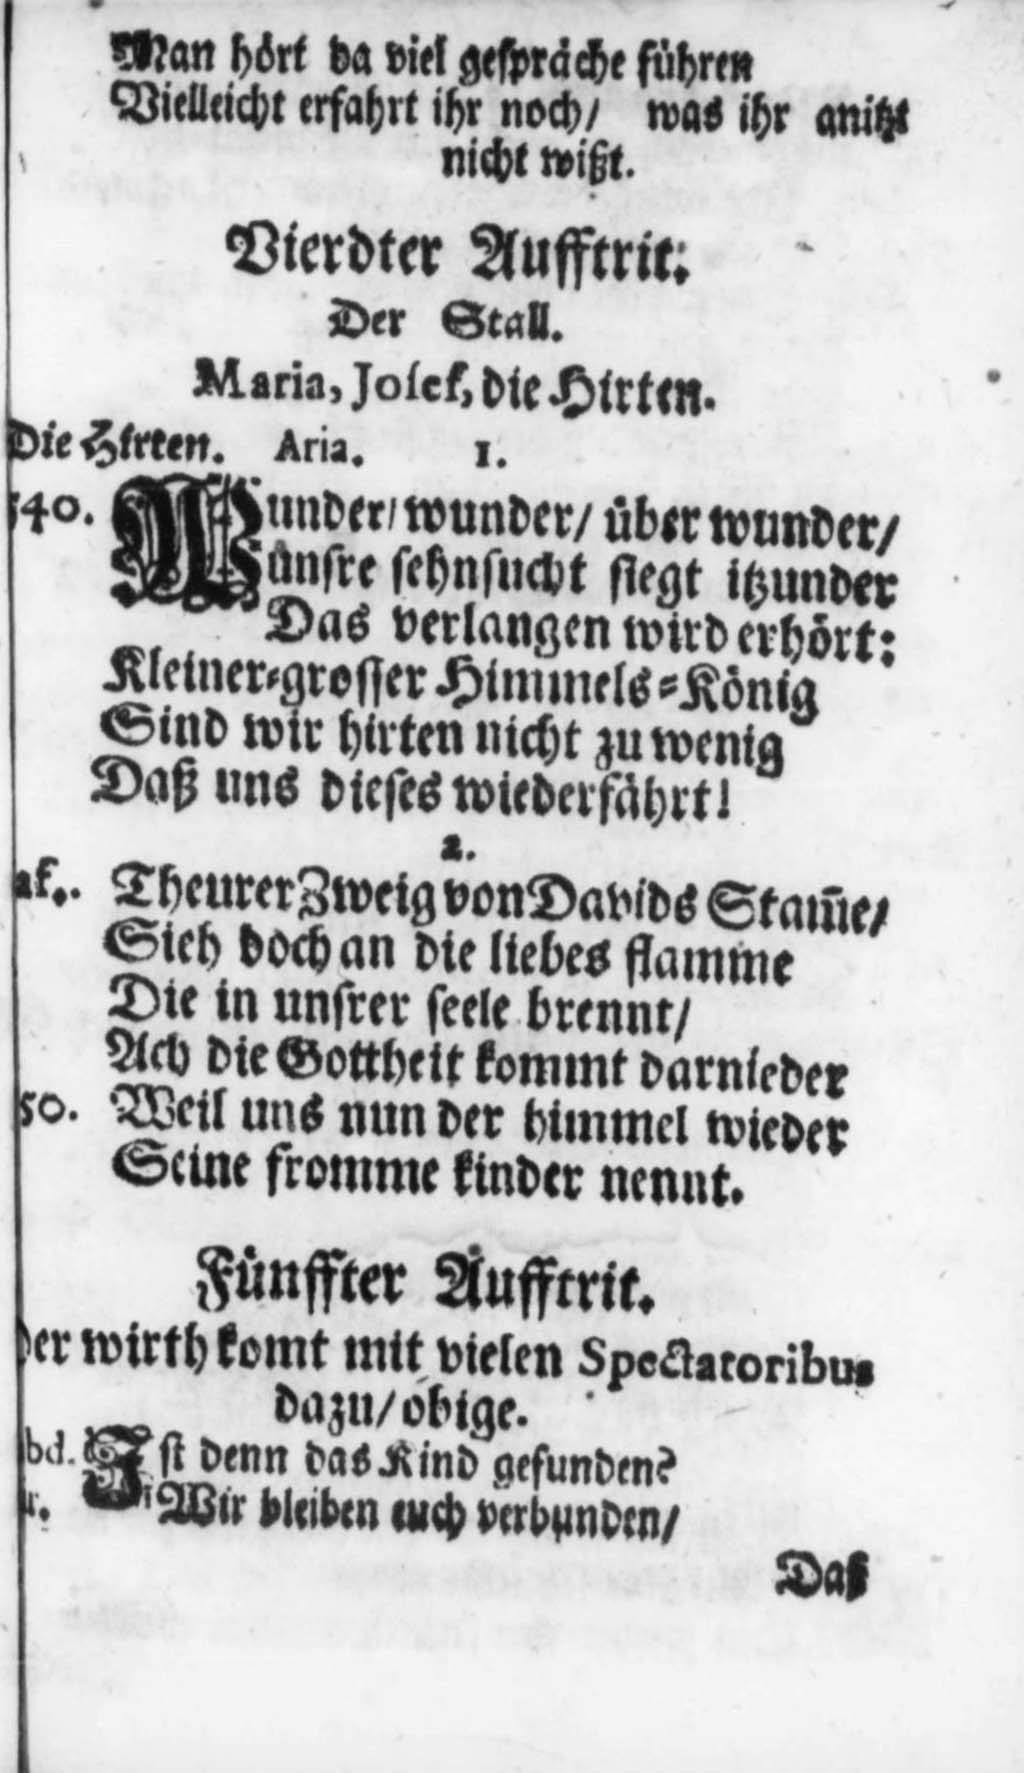 Man hört da viel gespräche führen
Vielleicht erfahrt ihr noch/ was ihr anitzt
nicht wißt.
Vierdter Aufftrit:
Der Stall.
Maria, Josef, die Hirten.
Die Hirten. Aria. 1.
540. Wunder/ wunder/ über wunder/
unsre sehnsucht siegt itzunder
Das verlangen wird erhört:
Kleiner-grosser Himmels-König
Sind wir hirten nicht zu wenig
Daß uns dieses wiederfährt!
2.
Theurer Zweig von Davids Stam̄e/
Sieh doch an die liebes flamme
Die in unsrer seele brennt/
Ach die Gottheit kommt darnieder
50. Weil uns nun der himmel wieder
Seine fromme kinder nennt.
Fünffter Aufftrit.
der wirth komt mit vielen Spectatoribus
dazu/ obige.
Ist denn das Kind gefunden?
Wir bleiben euch verbunden/
Daß